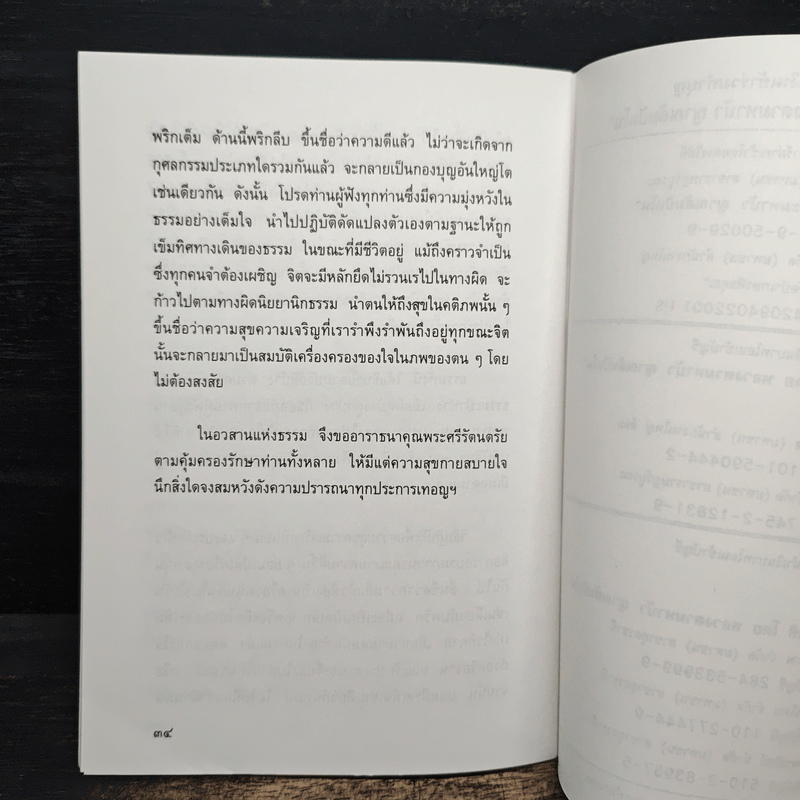 พริกเต็ม ด้านนี้พริกลีบ ขึ้นชื่อว่าความดีแล้ว ไม่ว่าจะเกิดจาก
กุศลกรรมประเภทใดรวมกันแล้ว จะกลายเป็นกองบุญอันใหญ่โต
เช่นเดียวกัน ดังนั้น โปรดท่านผู้ฟังทุกท่านซึ่งมีความมุ่งหวังใน
ธรรมอย่างเต็มใจ นำไปปฏิบัติดัดแปลงตัวเองตามฐานะให้ถูก
เข็มทิศทางเดินของธรรม ในขณะที่มีชีวิตอยู่ แม้ถึงคราวจำเป็น
ซึ่งทุกคนจำต้องเผชิญ จิตจะมีหลักยึดไม่รวนเรไปในทางผิด จะ
ก้าวไปตามทางผิดนิยยานิกธรรม นำตนให้ถึงสุขในคติภพนั้น ๆ
ขึ้นชื่อว่าความสุขความเจริญที่เรารำพึงรำพันถึงอยู่ทุกขณะจิต
นั้นจะกลายมาเป็นสมบัติเครื่องครองของใจในภพของตน ๆ โดย
ไม่ต้องสงสัย
ในอวสานแห่งธรรม จึงขออาราธนาคุณพระศรีรัตนตรัย
ตามคุ้มครองรักษาท่านทั้งหลาย ให้มีแต่ความสุขกายสบายใจ
นึกสิ่งใดจงสมหวังดังความปรารถนาทุกประการเทอญฯ
๓๔